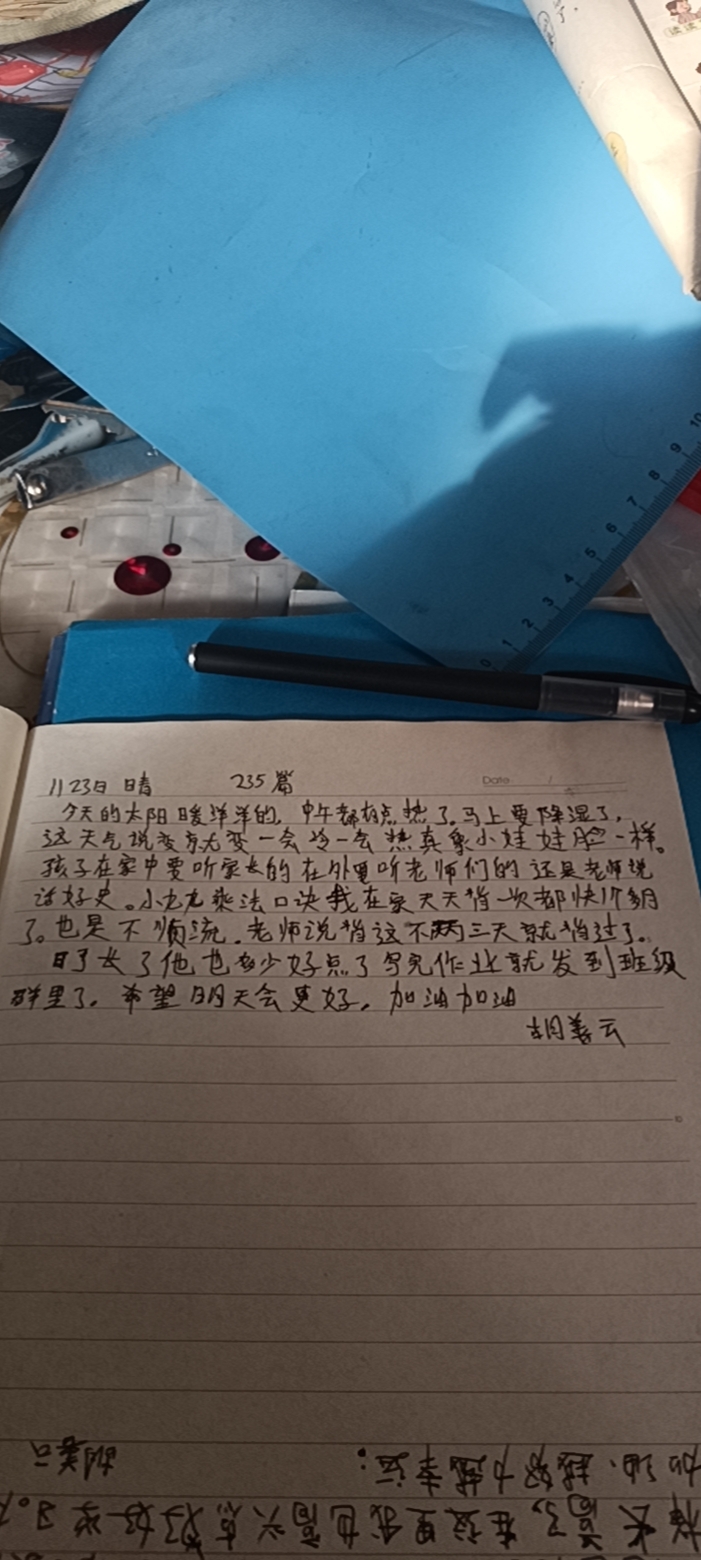 11 23日 晴 235篇
Date /
今天的太阳暖洋洋的,中午都有点热了。马上要降温了,
这天气说变就变一会冷一会热真象小娃娃脸一样。
孩子在家中要听家长的在外更听老师们的还是老师说
话好史。小九九乘法口诀我在家天天背一次都快1个多月
了。也是不顺流.老师说背这不两三天就背过了。
日子长了他也多少好点了写完作业就发到班级
群里了。希望明天会更好。加油加油
胡善云
0 1 2 3 4 5 6 7 8 9 10
加油,越努力越幸运:
胡善云